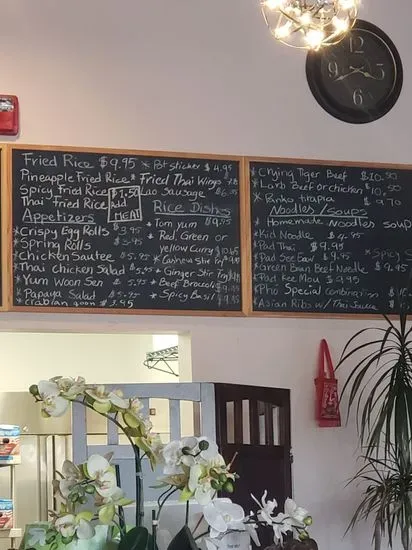 Fried Rice $9.95
Pineapple Fried Rice
Spicy Fried Rice
Thai Fried Rice
$1.50
Add
MEAT
Appetizers
*Crispy Egg Rolls $3.95
*Spring Rolls $5.95
*Chicken Sautee $5.95
*Thai Chicken Salad $5.95
*Yum Woon Sen $5.95
*Papaya Salad $5.95
$3.95
*Pot sticker $4.95
*Fried Thai Wings
Lao Sausage $6.95
Rice Dishes
*Tom yum $9.95
*Red, Green or
yellow Curry $10.95
*Cashew Stir Fry $9.95
*Ginger Stir Fry
*Beef Broccoli $9.95
*Spicy Basil $9.95
*Crying Tiger Beef $10.50
*Larb Beef or chicken $10.50
*Panko tilapia $9.70
Noodles/Soups
*Homemade Noodles soup
*Kid Noodle
*Pad Thai $9.95
*Pad See Eaw $9.95
*Spicy
*Green Bean Beef Noodle $9.95
*Pad Kee Mou $9.95
*Pho Special combination
*Asian Ribs w/ Thai Sauce
12
3
6
9